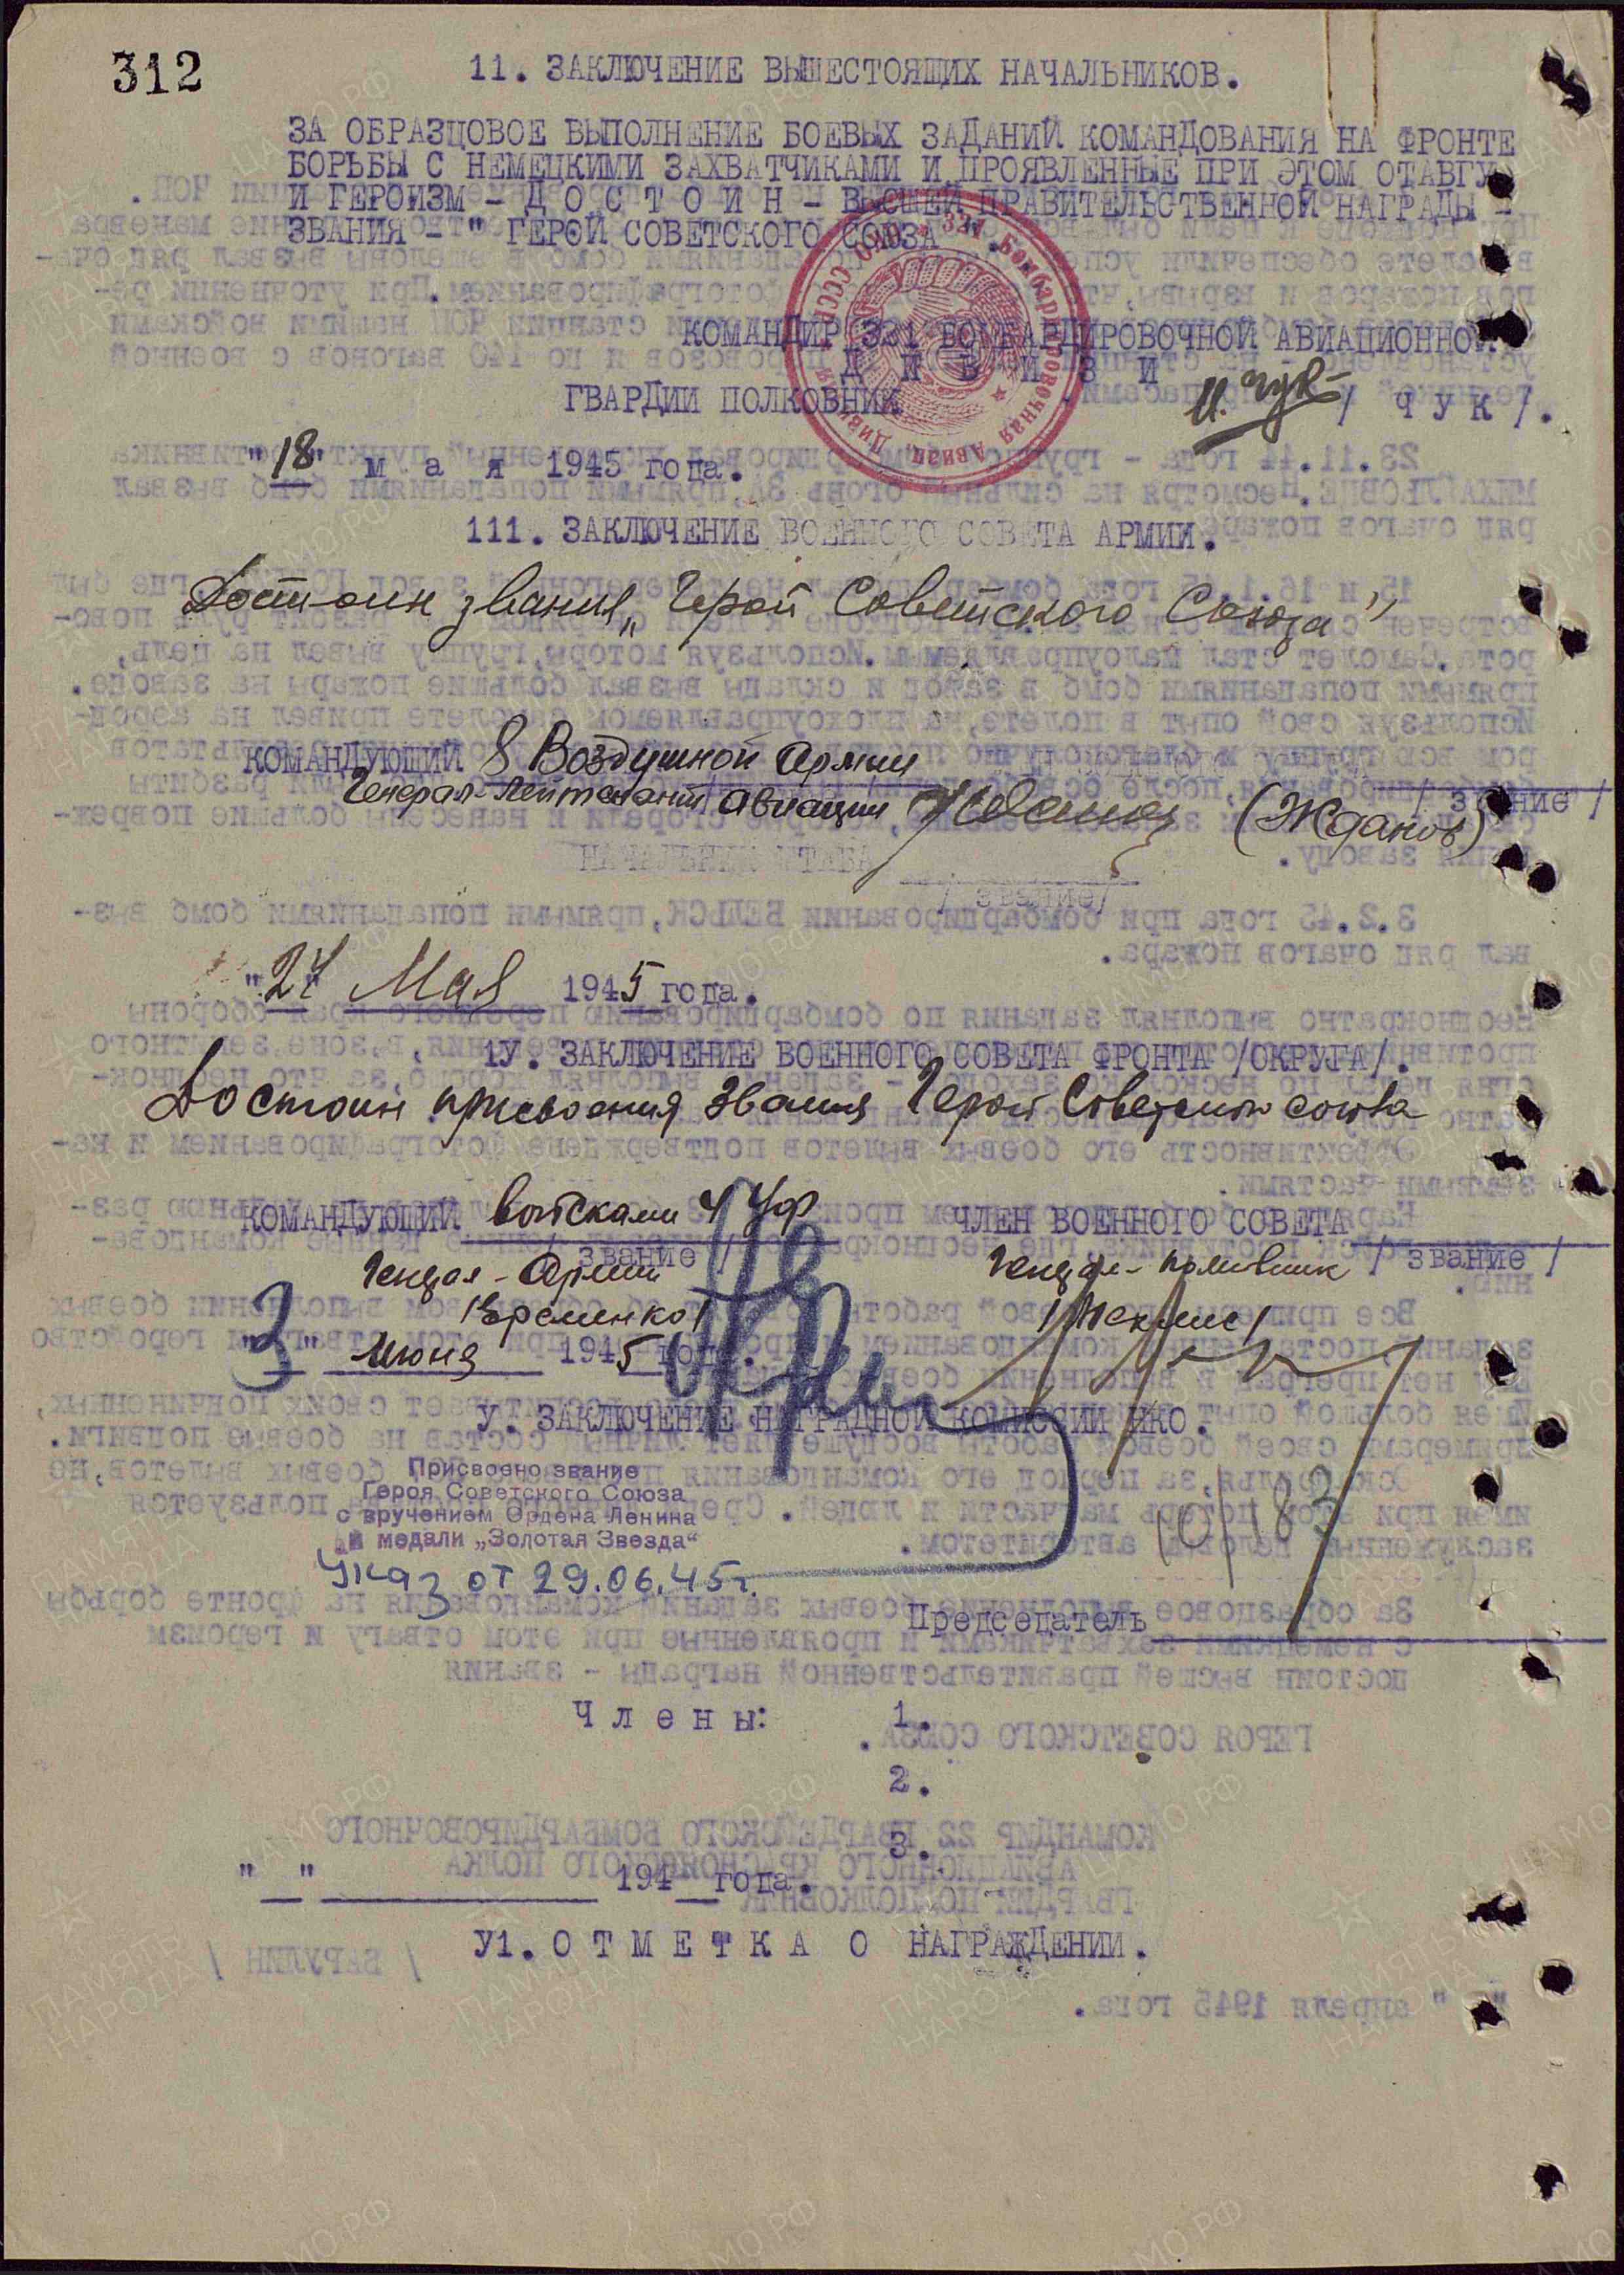 312
11. ЗАКЛЮЧЕНИЕ ВЫШЕСТОЯЩИХ НАЧАЛЬНИКОВ.
ЗА ОБРАЗЦОВОЕ ВЫПОЛНЕНИЕ БОЕВЫХ ЗАДАНИЙ КОМАНДОВАНИЯ НА ФРОНТЕ
БОРЬБЫ С НЕМЕЦКИМИ ЗАХВАТЧИКАМИ И ПРОЯВЛЕННЫЕ ПРИ ЭТОМ ОТАВГУ
И ГЕРОИЗМ - Д О С Т О И Н - ВЫСШЕЙ ПРАВИТЕЛЬСТВЕННОЙ НАГРАДЫ -
ЗВАНИЯ - " ГЕРОЙ СОВЕТСКОГО СОЮЗА ".
КОМАНДИР 331 БОМБАРДИРОВОЧНОЙ АВИАЦИОННОЙ
Д И В И З И И
ГВАРДИИ ПОЛКОВНИК И. Чук / Ч У К /.
"18" м а я 1945 года.
111. ЗАКЛЮЧЕНИЕ ВОЕННОГО СОВЕТА АРМИИ.
Достоин звания „Герой Советского Союза"
КОМАНДУЮЩИЙ 8 Воздушной Армии
Генерал-лейтенант авиации (Жданов) / звание /
НАЧАЛЬНИК ШТАБА
/ звание/
"24" Мая 1945 года.
1У. ЗАКЛЮЧЕНИЕ ВОЕННОГО СОВЕТА ФРОНТА /ОКРУГА/.
Достоин присвоения звания Герой Советского союза
КОМАНДУЮЩИЙ войсками 4 Уф ЧЛЕН ВОЕННОГО СОВЕТА
/ звание / / звание /
Генерал-Армии Генерал-полковник
/Еременко/ /Мехлис/
"3" Июня 1945 года.
У. ЗАКЛЮЧЕНИЕ НАГРАДНОЙ КОМИССИИ НКО.
Присвоено звание
Героя Советского Союза
с вручением Ордена Ленина
и медали „Золотая Звезда"
Указ от 29.06.45г.
10/183
Председатель
Ч л е н ы: 1.
2.
3.
" " 194 года.
У1. О Т М Е Т К А О НАГРАЖДЕНИИ.